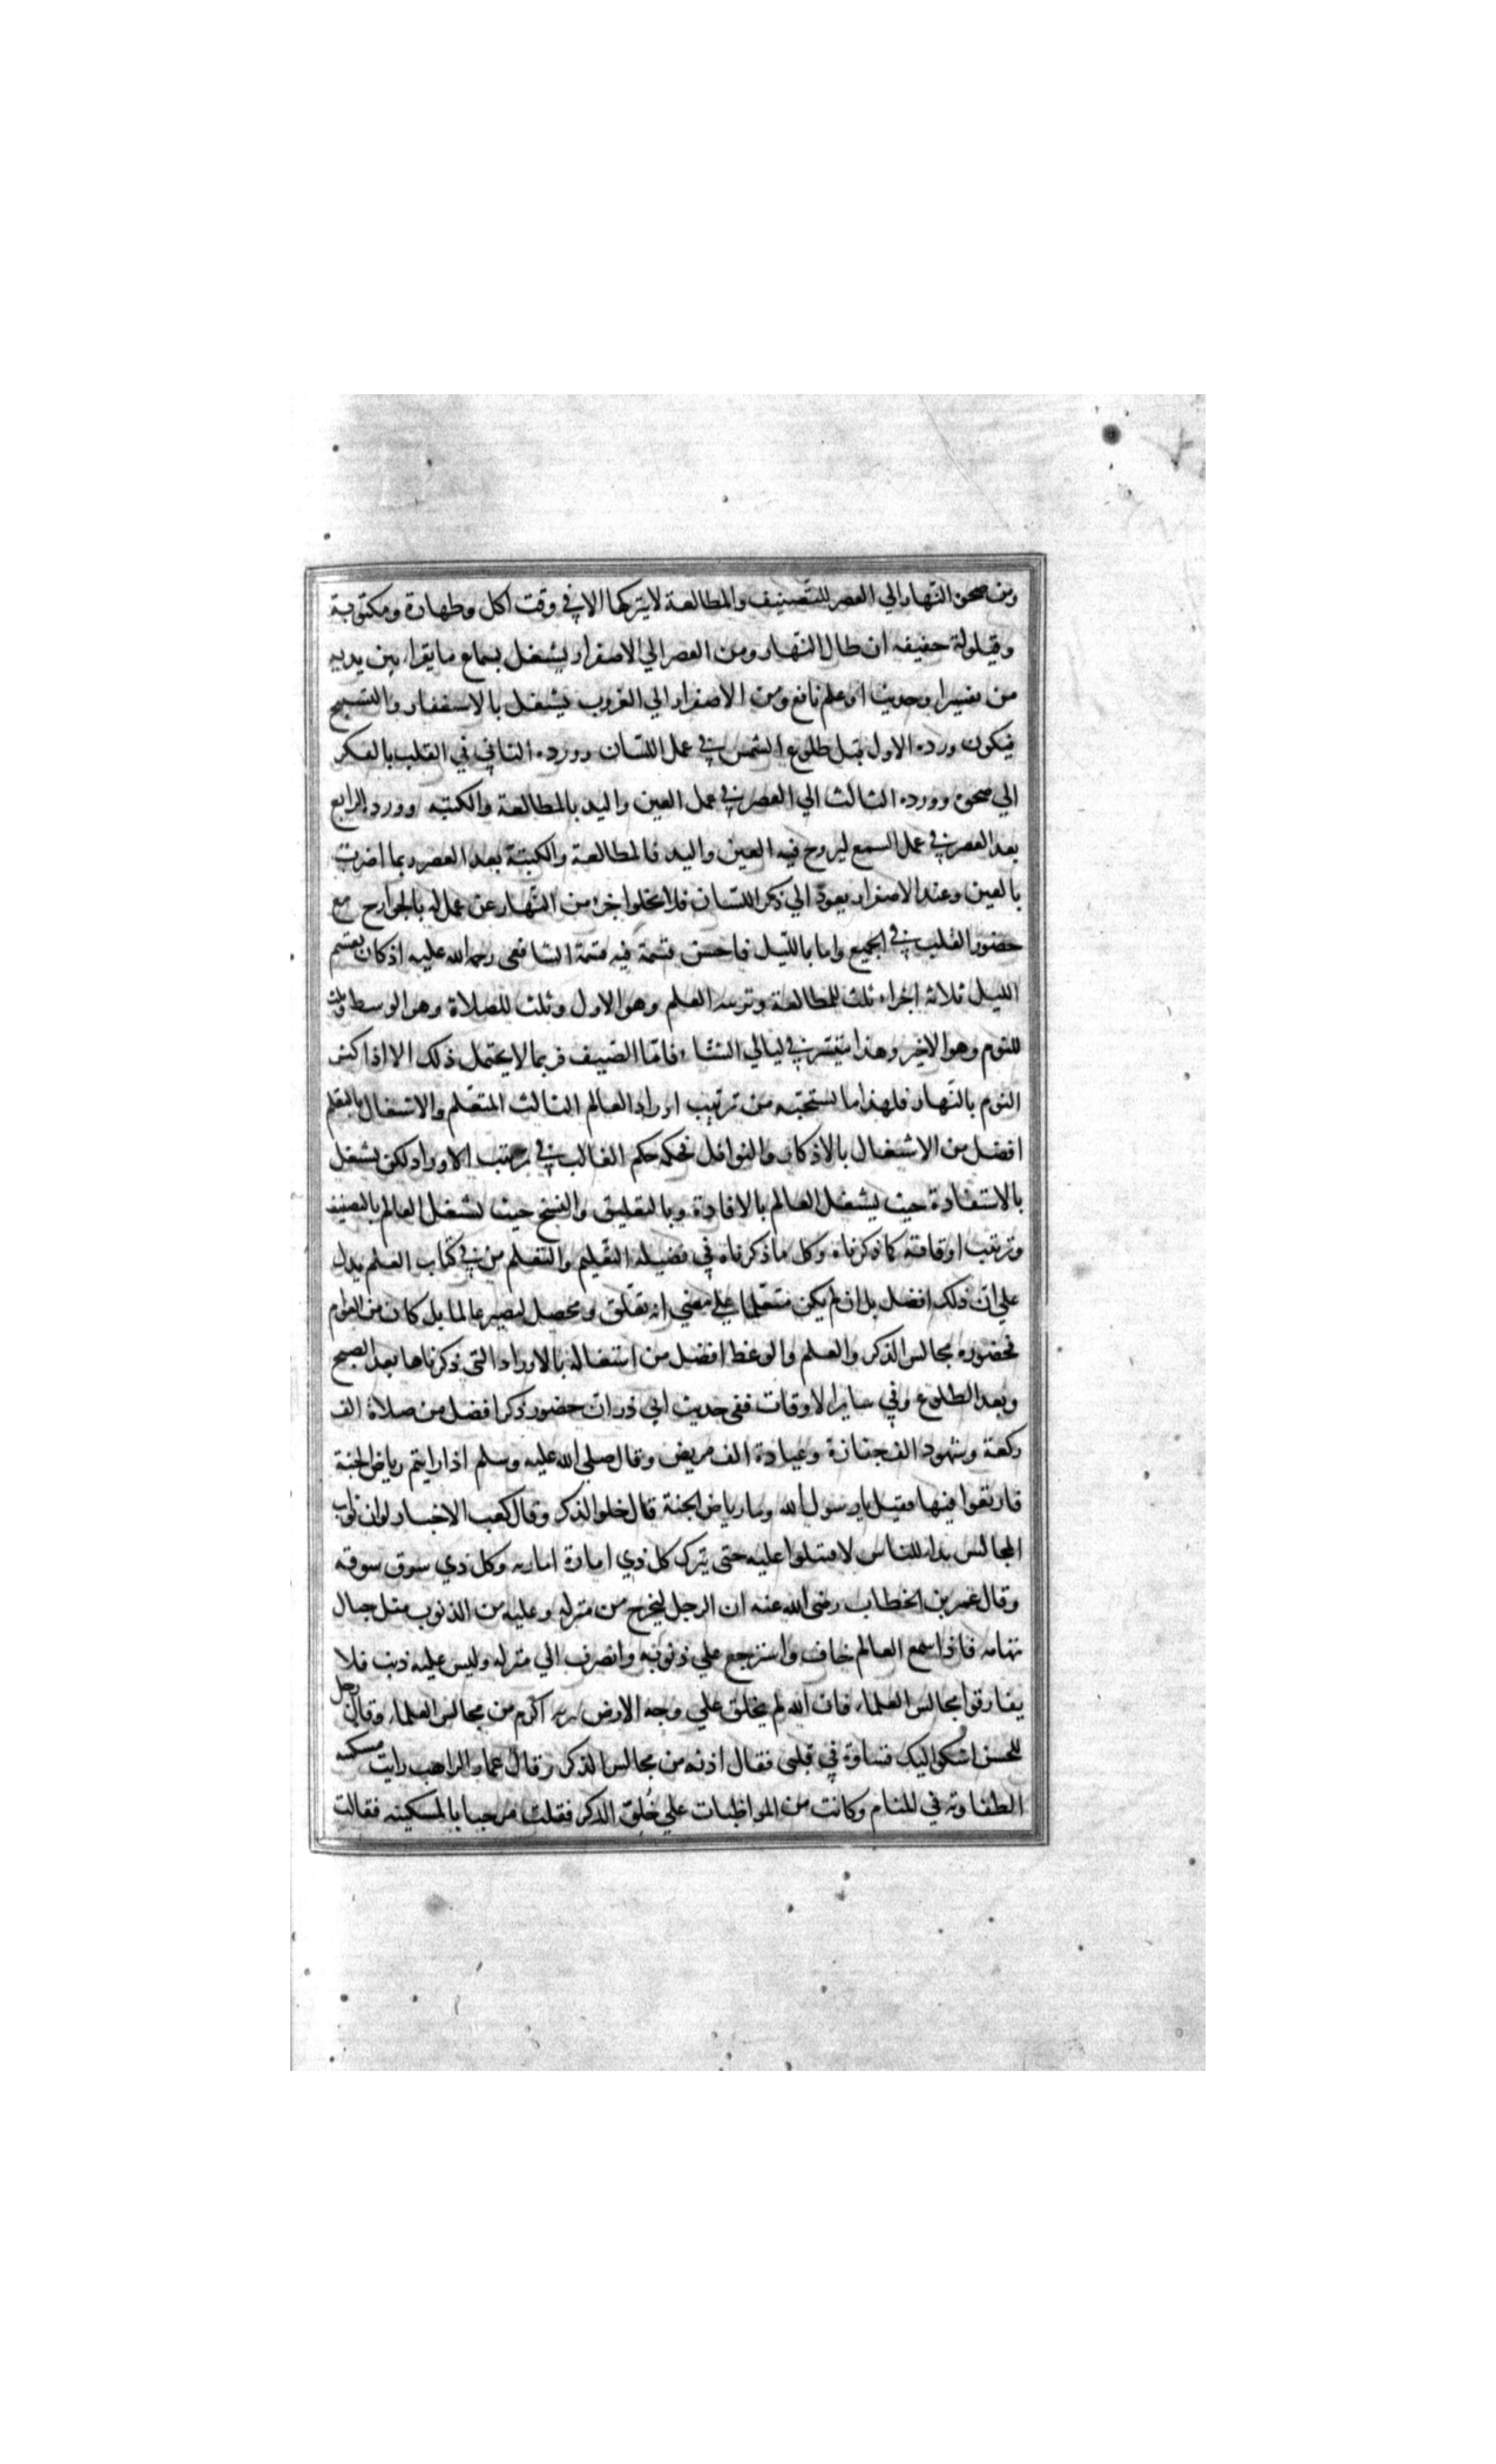 ومن ضحوة النهار الي العصر للتصنيف والمطالعة لا يتركها الا في وقت اكل وطهارة ومكتوبة
وقيلولة خفيفه ان طال النهار ومن العصر الي الاصفرار يشتغل بسماع ما يقرا بين يديه
من تفسير او حديث او علم نافع ومن الاصفرار الي الغروب يشتغل بالاستغفار والتسبيح
فيكون ورده الاول قبل طلوع الشمس في عمل اللسان وورده الثاني في القلب بالفكر
الي ضحوة وورده الثالث الي العصر في عمل العين واليد بالمطالعة والكتبه وورده الرابع
بعد العصر في عمل السمع ليروح فيه العين واليد فالمطالعة والكتبة بعد العصر ربما اضرت
بالعين وعند الاصفرار يعود الي ذكر اللسان فلا يخلوا جزء من النهار عن عمل له بالجوارح مع
حضور القلب في الجميع واما بالليل فاحسن قسمة فيه قسمة الشافعي رحمه الله عليه اذ كان يقسم
الليل ثلاثه اجزاء ثلث للمطالعة وترتيب العلم وهو الاول وثلث للصلاة وهو الوسط وثلث
للنوم وهو الاخير وهذا يتيسر في ليالي الشتاء فامّا الصيف فربما لا يحتمل ذلك الا اذا كان اكثر
النوم بالنهار فلهذا ما نستحبه من ترتيب اوراد العالم الثالث المتعلم والاشتغال بالتعلم
افضل من الاشتغال بالاذكار والنوافل فحكمه حكم العالم في ترتيب الاوراد لكن يشتغل
بالاستفادة حيث يشتغل العالم بالافادة وبالتعليق والنسخ حيث يشتغل العالم بالتصنيف
وترتيب اوقاته كما ذكرناه وكل ما ذكرناه في فضيله التعليم والتعلم من في كتاب العلم يدل
علي ان ذلك افضل بل ان لم يكن متعلما علي معني انه تعلق وتحصل ليصير عالما بل كان من العوام
فحضوره مجالس الذكر والعلم والوعظ افضل من اشتغاله بالاوراد التي ذكرناها بعد الصبح
وبعد الطلوع وفي ساير الاوقات ففي حديث ابي ذر ان حضور ذكر افضل من صلاة الف
ركعة وشهود الف جنازة وعيادة الف مريض وقال صلي الله عليه وسلم اذا رايتم رياض الجنة
فارتعوا فيها فقيل يا رسول الله وما رياض الجنة قال حلق الذكر وقال كعب الاحبار لو ان ثواب
المجالس بدا للناس لاقتتلوا عليه حتى يترك كل ذي امارة امارته وكل ذي سوق سوقه
وقال عمر بن الخطاب رضي الله عنه ان الرجل ليخرج من منزله وعليه من الذنوب مثل جبال
تهامه فاذا سمع العالم خاف واسترجع علي ذنوبه وانصرف الي منزله وليس عليه ذنب فلا
يفارقوا مجالس العلماء فان الله لم يخلق علي وجه الارض تربه اكرم من مجالس العلماء وقال رجل
للحسن اشكو اليك قساوة في قلبي فقال ادنه من مجالس الذكر وقال عمار الراهب رايت مسكينه
الطفاوته في المنام وكانت من المواظبات علي خلق الذكر فقلت مرحبا بالمسكينه فقالت